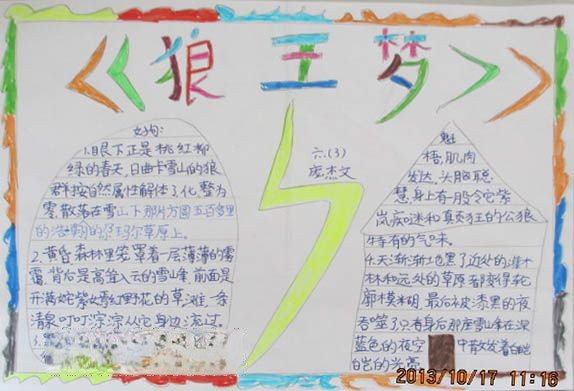 《《狼王梦》》
好句:
1.眼下正是桃红柳
绿的春天,日曲卡雪山的狼
群按自然属性解体了,化整为
零,散落在雪山下那片方圆五百多里
的浩瀚的尕玛尔草原上。
2.黄昏,森林里笼罩着一层薄薄的雾
霭,背后是高耸入云的雪山峰,前面是
开满姹紫嫣红野花的草滩,一条
清泉叮叮淙淙从它身边流过。
3.黑
六(3)
杰文
魁
梧,肌肉
发达,头脑聪
慧,身上有股令它紫
岚痴迷和真狂的公狼
特有的气味。
4.天渐渐地黑了,近处的灌木
林和远处的草原都变得轮
廓模糊,最后被漆黑的夜
吞噬了,只有身后那座雪山峰在深
蓝色的夜空中散发着白皑
皑的光亮
2013/10/17 11:16